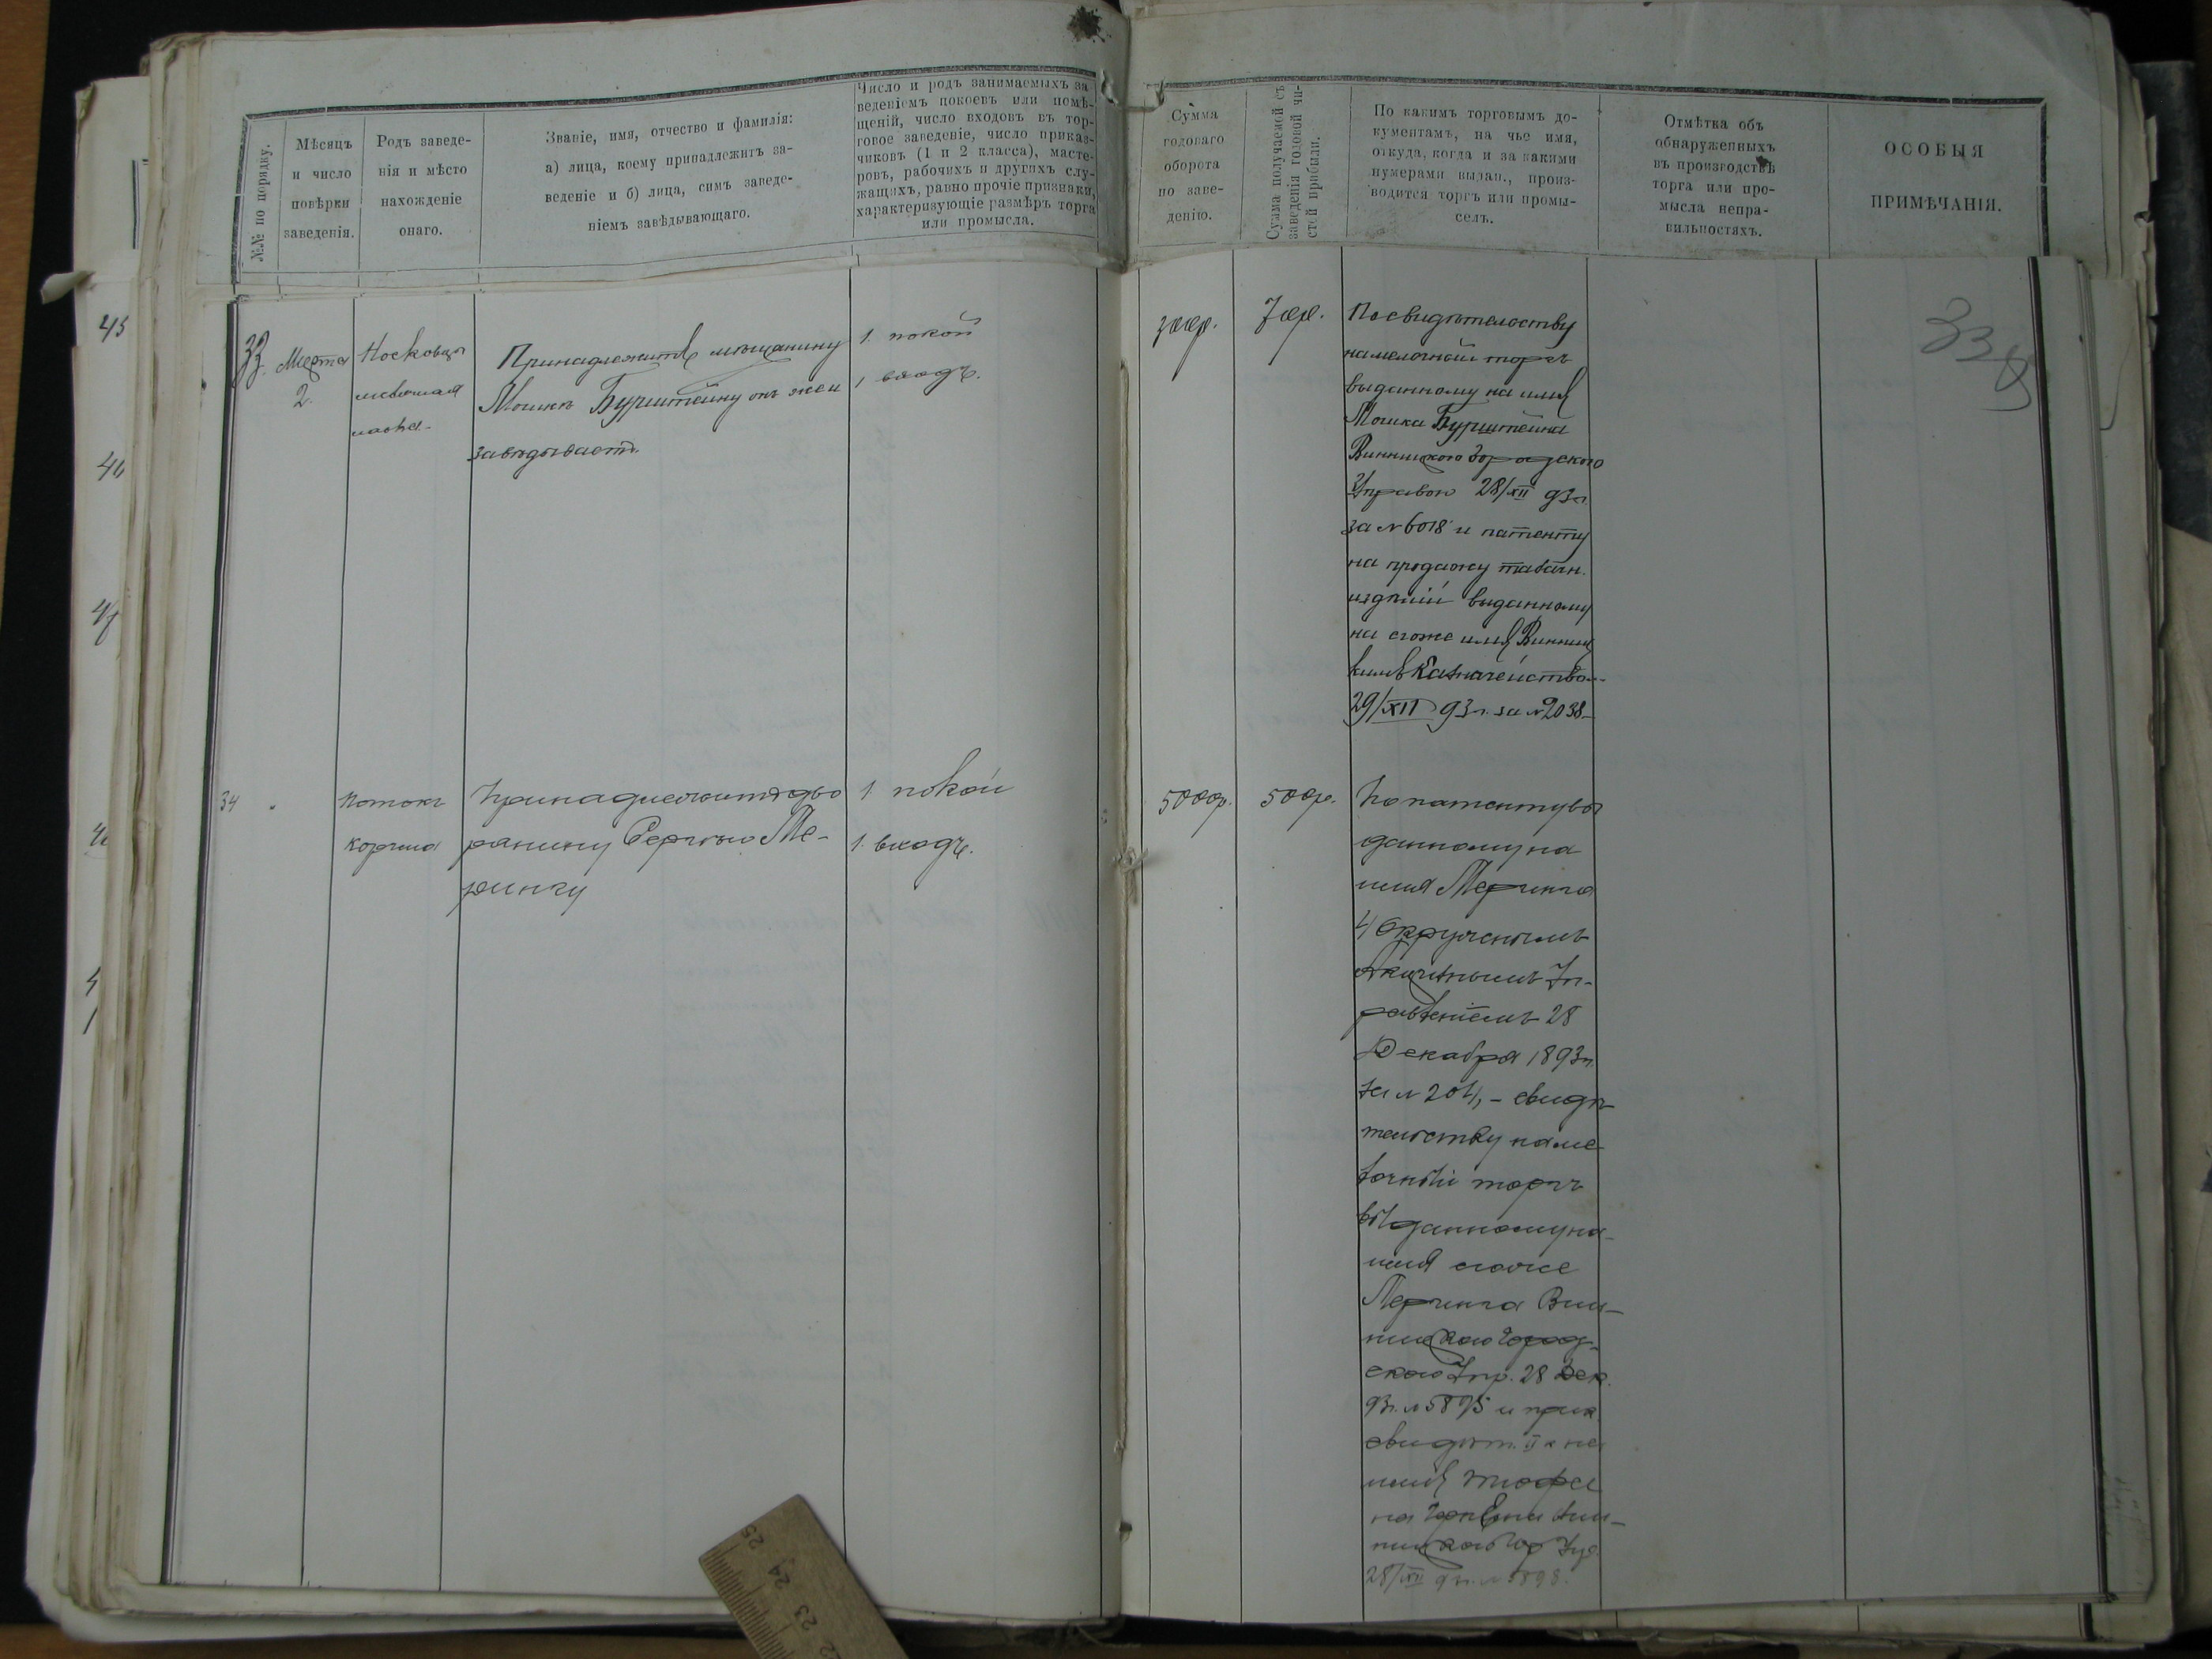 №№ по порядку.
Мѣсяцъ
и число
повѣрки
заведенія.
Родъ заведе-
нія и мѣсто
нахожденіе
онаго.
Званіе, имя, отчество и фамилія:
а) лица, коему принадлежитъ за-
веденіе и б) лица, симъ заведе-
ніемъ завѣдывающаго.
Число и родъ занимаемыхъ за
веденіемъ покоевъ или помѣ-
щеній, число входовъ въ тор-
говое заведеніе, число приказ-
чиковъ (1 и 2 класса), масте-
ровъ, рабочихъ и другихъ слу-
жащихъ, равно прочіе признаки,
характеризующіе размѣръ торга
или промысла.
Сумма
годоваго
оборота
по заве-
денію.
Сумма получаемой съ
заведенія годовой чи-
стой прибыли.
По какимъ торговымъ до-
кументамъ, на чье имя,
откуда, когда и за какими
нумерами выдан., произ-
водится торгъ или промы-
селъ.
Отмѣтка объ
обнаруженныхъ
въ производствѣ
торга или про-
мысла непра-
вильностяхъ.
ОСОБЫЯ
ПРИМѢЧАНІЯ.
45
46
47
33.
Марта
2.
Носковцы
мелочная
лавка
Принадлежитъ мѣщанину
Мошкѣ Бурштейну онъ же и
завѣдываетъ
1 покой
1 входъ.
300р.
70р.
По свидѣтельству
на мелочный торгъ
выданному на имя
Мошка Бурштейна
Винницкого Городского
Управою 28/XII 93г.
за №6018 и патенту
на продажу табачн.
издѣлій выданному
на егоже имя Винниц
кимъ Казначействомъ
29/XII 93г. за №2038
33
34
Потокъ
корчма
Принадлежитъ дво
рянину Сергѣю Ме-
рингу
1 покой
1. входъ.
5000р.
500р.
По патенту вы
данному на
имя Меринга
4 Окружнымъ
Акцизнымъ Уп-
равленіемъ 28
Декабря 1893г.
за №204, - свидѣ
тельству на ме
лочный торгъ
выданному на
имя егоже
Меринга Вин-
ницкою Город-
скою Упр. 28 Дек.
93г. №5895 и прик.
свидѣт. II к на
имя
на
ницкою Гор Упр.
28/XII 93г. №5898.
25
24
23
22